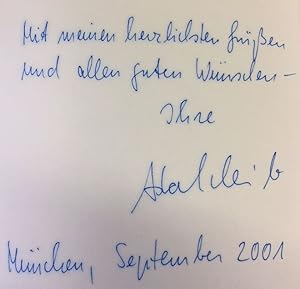 Mit meinen herzlichsten Grüßen
und allen guten Wünschen –
Ihre
München, September 2001